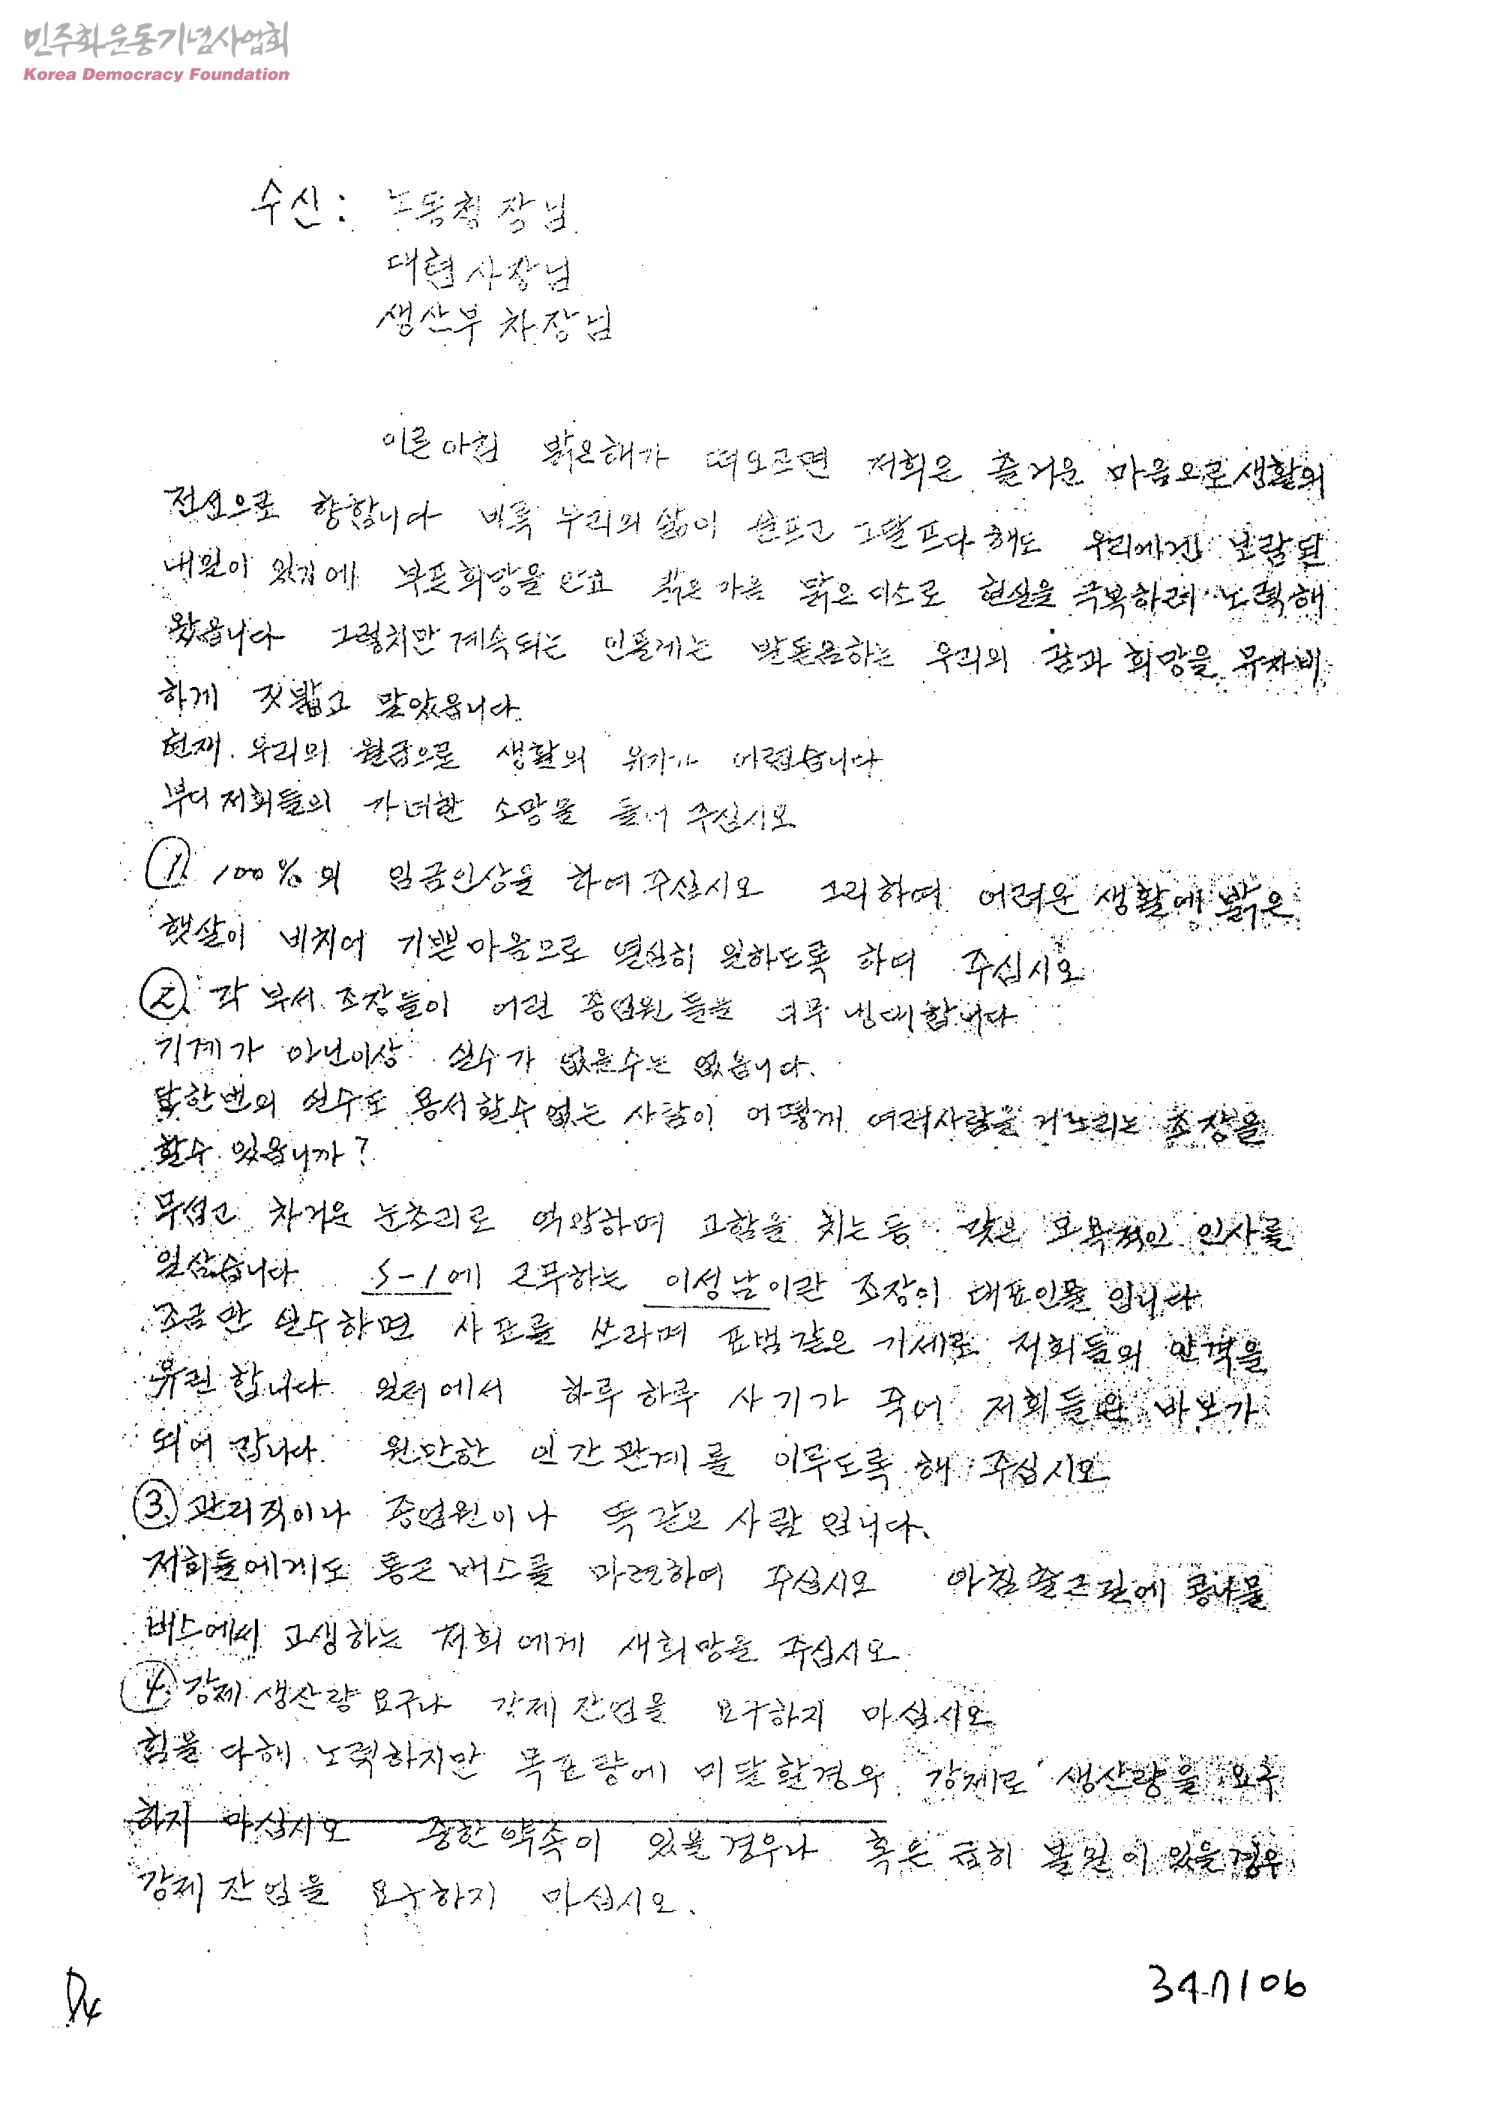 민주화운동기념사업회
Korea Democracy Foundation
수신: 노동청장님
대협사장님
생산부 차장님
이른아침 밝은해가 떠오르면 저희은 즐거운 마음으로 생활의
전선으로 향합니다 비록 우리의 삶이 슬프고 고달프다해도 우리에겐 보람된
내일이 있기에 부푼희망을 안고 밝은 미소로 현실을 극복하려 노력해
왔읍니다 그렇치만 계속되는 인플레는 발돋음하는 우리의 꿈과 희망을 무자비
하게 짓밟고 말았읍니다
현재. 우리의 월급으론 생활의 유지가 어렵습니다
부디 저희들의 가녀한 소망을 들어 주십시오
① 100%의 임금인상을 하여주십시오 그리하여 어려운 생활에 밝은
햇살이 비치어 기쁜마음으로 열심히 일하도록 하여 주십시오
② 각 부서 조장들이 어린 종업원들을 너무 냉대합니다
기계가 아닌이상 실수가 없을수는 없읍니다.
단한번의 실수도 용서할수없는 사람이 어떻게 여러사람을 거느리는 조장을
할수 있읍니까?
무섭고 차거운 눈초리로 억압하며 고함을 치는등 갖은 모욕적인 인사를
일삼습니다 S-1에 근무하는 이성남이란 조장이 대표인물 입니다
조금만 실수하면 사표를 쓰라며 표범같은 기세로 저희들의 인격을
유린합니다 일터에서 하루하루 사기가 죽어 저희들은 바보가
되어 갑니다. 원만한 인간관계를 이루도록 해 주십시오
③ 관리직이나 종업원이나 똑같은 사람 입니다.
저희들에게도 통근버스를 마련하여 주십시오 아침출근길에 콩나물
버스에서 고생하는 저희에게 새희망을 주십시오
④ 강제생산량요구나 강제잔업을 요구하지 마십시오
힘을 다해 노력하지만 목표량에 미달할경우 강제로 생산량을 요구
하지 마십시오 중한약속이 있을경우나 혹은 급히 볼일이 있을경우
강제잔업을 요구하지 마십시오.
347106